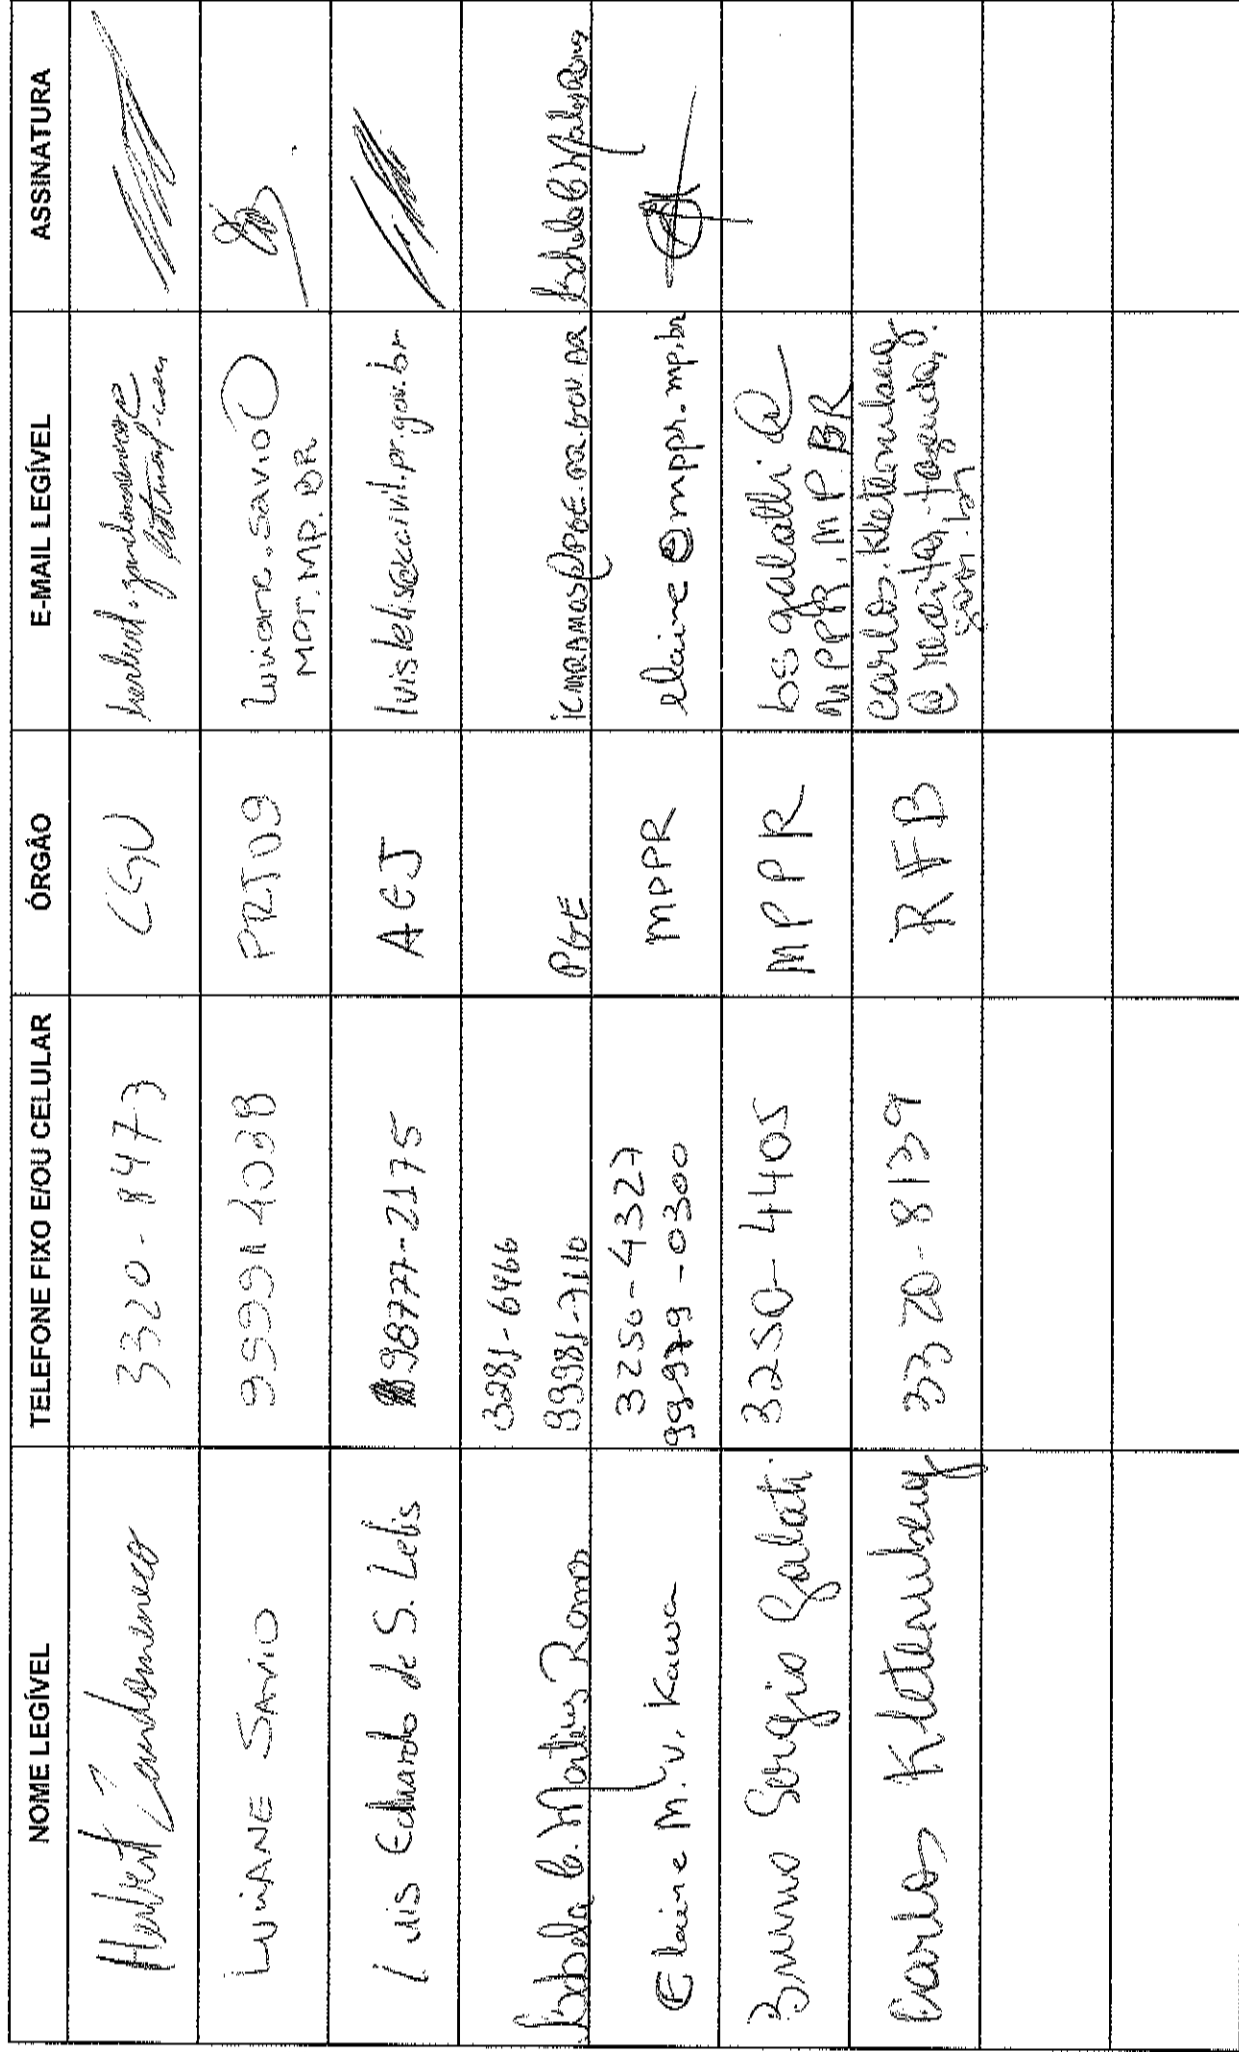 NOME LEGÍVEL TELEFONE FIXO E/OU CELULAR ÓRGÃO E-MAIL LEGÍVEL ASSINATURA
Herbert Zandomeneco 3320-8473 CGU
LUCIANE SAVIO 99991 4038 PRT09 Luciane.Savio@
MPT.MP.BR
Luis Eduardo de S. Lelis 98777-2175 AEJ luislelis@ccivil.pr.gov.br
3281-6466
Isabela C. Martins Ramos 99981-7110 PGE icmramos@pge.pr.gov.br
3250-4327
Elaine M. V. Kawa 99979-0300 MPPR elaine@mppr.mp.br
Bruno Sergio Galati 3250-4405 MPPR bsgalatti@
MPPR.MP.BR
Carlos Kletemberg 3320-8139 RFB carlos.kletemberg
@receita.fazenda.
gov.br